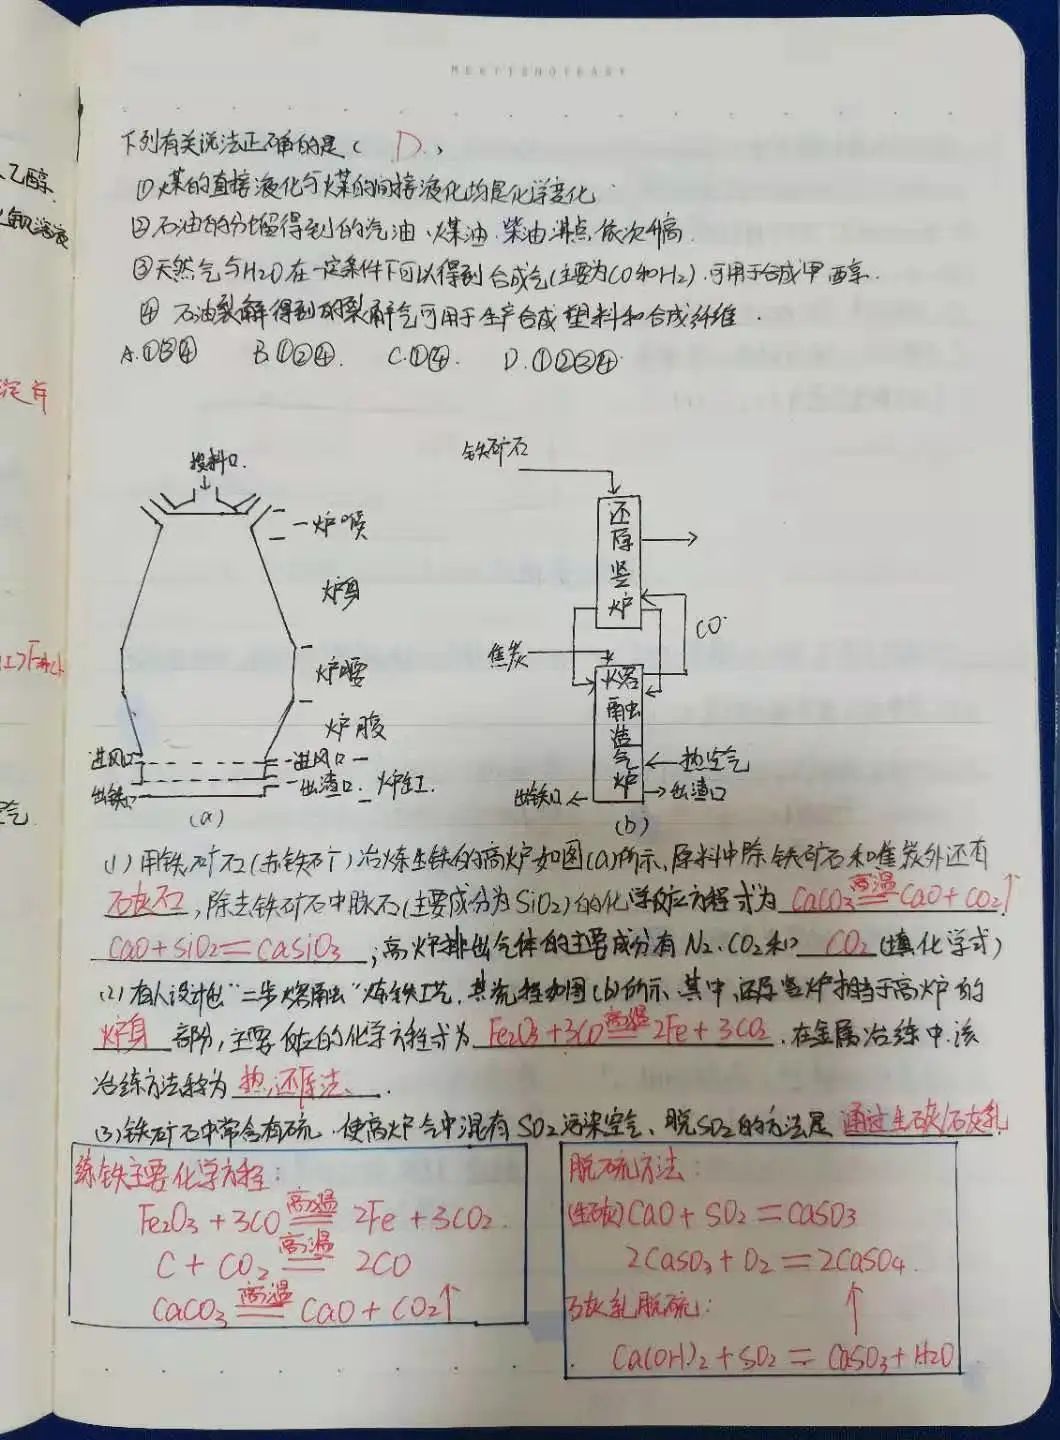 乙醇
下列有关说法正确的是( D )
①煤的直接液化与煤的间接液化均是化学变化
②石油的分馏得到的汽油、煤油、柴油沸点依次升高.
③天然气与H2O在一定条件下可以得到合成气(主要为CO和H2).可用于合成甲醇.
④ 石油裂解得到的裂解气可用于生产合成塑料和合成纤维.
A.①③④ B.①②④. C.①④. D.①②③④.
投料口.
炉喉
炉身
炉腰
炉腹
进风口
进风口
出渣口.
炉缸.
出铁口
(a)
铁矿石
还原竖炉
CO
焦炭
熔融造气炉
热空气
出铁口
出渣口
(b)
(1)用铁矿石(赤铁矿)冶炼生铁的高炉如图(a)所示、原料中除铁矿石和焦炭外还有
石灰石,除去铁矿石中脉石(主要成分为SiO2)的化学反应方程式为 CaCO3高温══CaO+CO2↑
CaO+SiO2══CaSiO3;高炉排出气体的主要成分有N2.CO2和 CO2(填化学式)
(2)有人设计出"二步熔融"炼铁工艺,其流程如图(b)所示.其中,还原竖炉相当于高炉的
炉身 部分,主要反应的化学方程式为 Fe2O3+3CO高温══2Fe+3CO2.在金属冶练中.该
冶练方法称为 热还原法.
(3)铁矿石中常含有硫.使高炉气中混有SO2污染空气、脱SO2的方法是 通过生石灰/石灰乳
炼铁主要化学方程:
Fe2O3+3CO高温══2Fe+3CO2.
C+CO2高温══2CO
CaCO3高温══CaO+CO2↑
脱硫方法:
(生石灰)CaO+SO2══CaSO3
2CaSO3+O2══2CaSO4.
石灰乳脱硫: ↑
Ca(OH)2+SO2══CaSO3+H2O